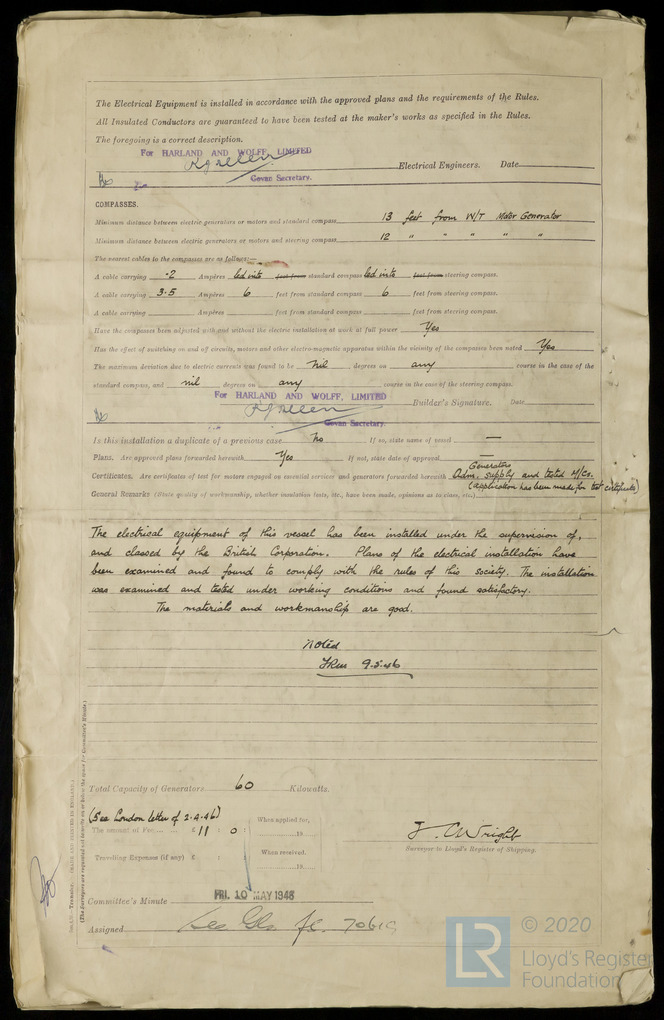 The Electrical Equipment is installed in accordance with the approved plans and the requirements of the Rules.
All Insulated Conductors are guaranteed to have been tested at the maker's works as specified in the Rules.
The foregoing is a correct description.
For HARLAND AND WOLFF, LIMITED
Electrical Engineers. Date
Govan Secretary.
COMPASSES.
Minimum distance between electric generators or motors and standard compass 13 feet from W/T Motor Generator
Minimum distance between electric generators or motors and steering compass 12 " " " " "
The nearest cables to the compasses are as follows:—
A cable carrying ·2 Ampères led into feet from standard compass led into feet from steering compass.
A cable carrying 3·5 Ampères 6 feet from standard compass 6 feet from steering compass.
A cable carrying Ampères feet from standard compass feet from steering compass.
Have the compasses been adjusted with and without the electric installation at work at full power Yes
Has the effect of switching on and off circuits, motors and other electro-magnetic apparatus within the vicinity of the compasses been noted Yes
The maximum deviation due to electric currents was found to be Nil degrees on any course in the case of the
standard compass, and nil degrees on any course in the case of the steering compass.
For HARLAND AND WOLFF, LIMITED
Builder's Signature. Date
Govan Secretary.
Is this installation a duplicate of a previous case No If so, state name of vessel —
Plans. Are approved plans forwarded herewith Yes If not, state date of approval —
Generators
Certificates. Are certificates of test for motors engaged on essential services and generators forwarded herewith Adm. supply and tested M/Cs.
(application has been made for test certificate)
General Remarks (State quality of workmanship, whether insulation tests, etc., have been made, opinions as to class, etc.)
The electrical equipment of this vessel has been installed under the supervision of,
and classed by the British Corporation. Plans of the electrical installation have
been examined and found to comply with the rules of this society. The installation
was examined and tested under working conditions and found satisfactory.
The materials and workmanship are good.
Noted
9.5.46
Total Capacity of Generators 60 Kilowatts.
(See London letter of 2-4-46)
The amount of Fee £ 11 : 0 :
When applied for,
19
Travelling Expenses (if any) £ : :
When received,
19
J. C. Wright
Surveyor to Lloyd's Register of Shipping.
Committee's Minute FRI. 10 MAY 1946
Assigned
(The Surveyors are requested not to write on or below the space for Committee's Minute.)
© 2020
LR
Lloyd's Register
Foundation